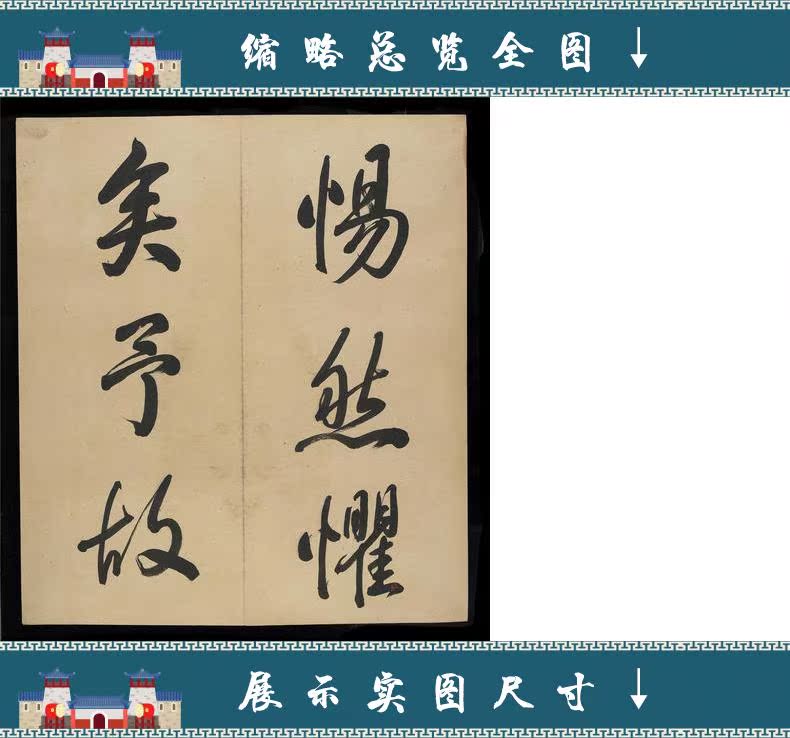 缩略总览全图
惕然懼
矣予故
展示实图尺寸